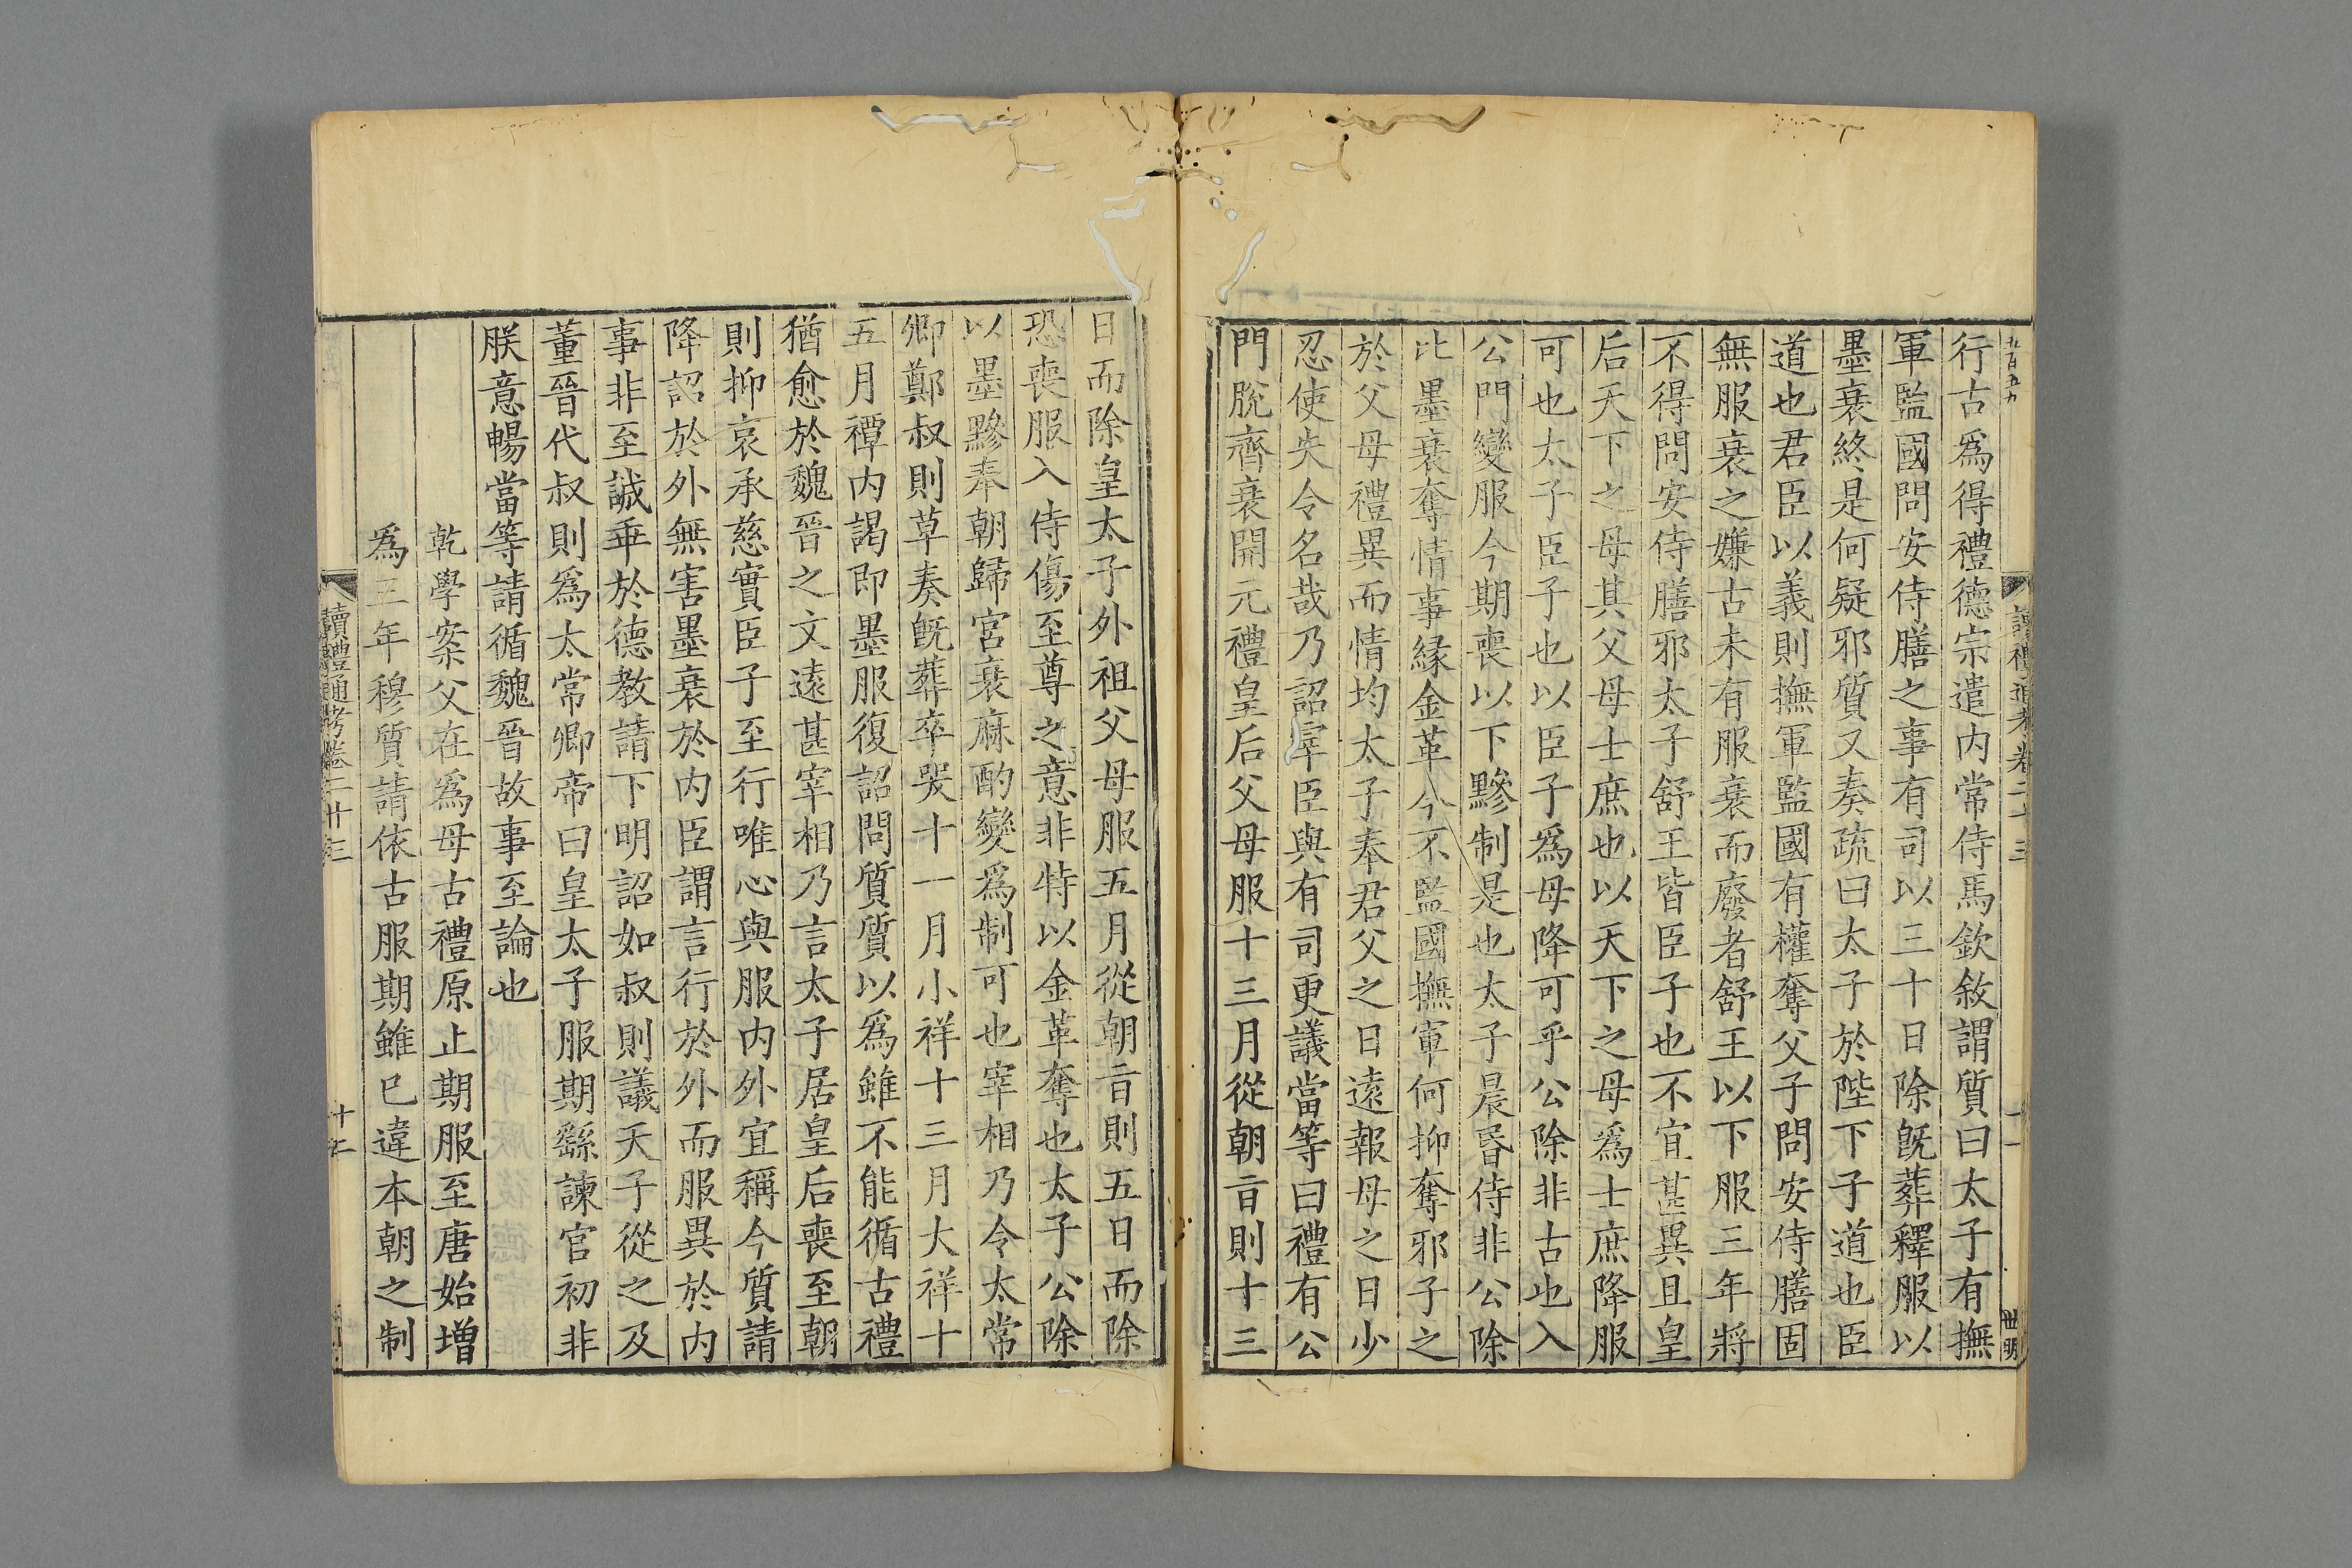 行古爲得禮德宗遣内常侍馬欽敘謂質曰太子有撫
軍監國問安侍膳之事有司以三十日除旣葬釋服以
墨衰終是何疑邪質又奏疏曰太子於陛下子道也臣
道也君臣以義則撫軍監國有權奪父子問安侍膳固
無服衰之嫌古未有服衰而廢者舒王以下服三年將
不得問安侍膳邪太子舒王皆臣子也不宜甚異且皇
后天下之母其父母士庶也以天下之母爲士庶降服
可也太子臣子也以臣子爲母降可乎公除非古也入
公門變服今期喪以下黲制是也太子晨昏侍非公除
比墨衰奪情事緣金革今不監國撫軍何抑奪邪子之
於父母禮異而情均太子奉君父之日遠報母之日少
忍使失令名哉乃詔宰臣與有司更議當等曰禮有公
門脫齊衰開元禮皇后父母服十三月從朝旨則十三
日而除皇太子外祖父母服五月從朝旨則五日而除
恐喪服入侍傷至尊之意非特以金革奪也太子公除
以墨黲奉朝歸宮衰麻酌變爲制可也宰相乃令太常
卿鄭叔則草奏旣葬卒哭十一月小祥十三月大祥十
五月禫内謁即墨服復詔問質質以爲雖不能循古禮
猶愈於魏晉之文遠甚宰相乃言太子居皇后喪至朝
則抑哀承慈實臣子至行唯心與服内外宜稱今質請
降詔於外無害墨衰於内臣謂言行於外而服異於内
事非至誠乖於德教請下明詔如叔則議天子從之及
董晉代叔則爲太常卿帝曰皇太子服期繇諫官初非
朕意暢當等請循魏晉故事至論也
乾學案父在爲母古禮原止期服至唐始增
爲三年穆質請依古服期雖已違本朝之制
讀禮通考卷二十三
十二